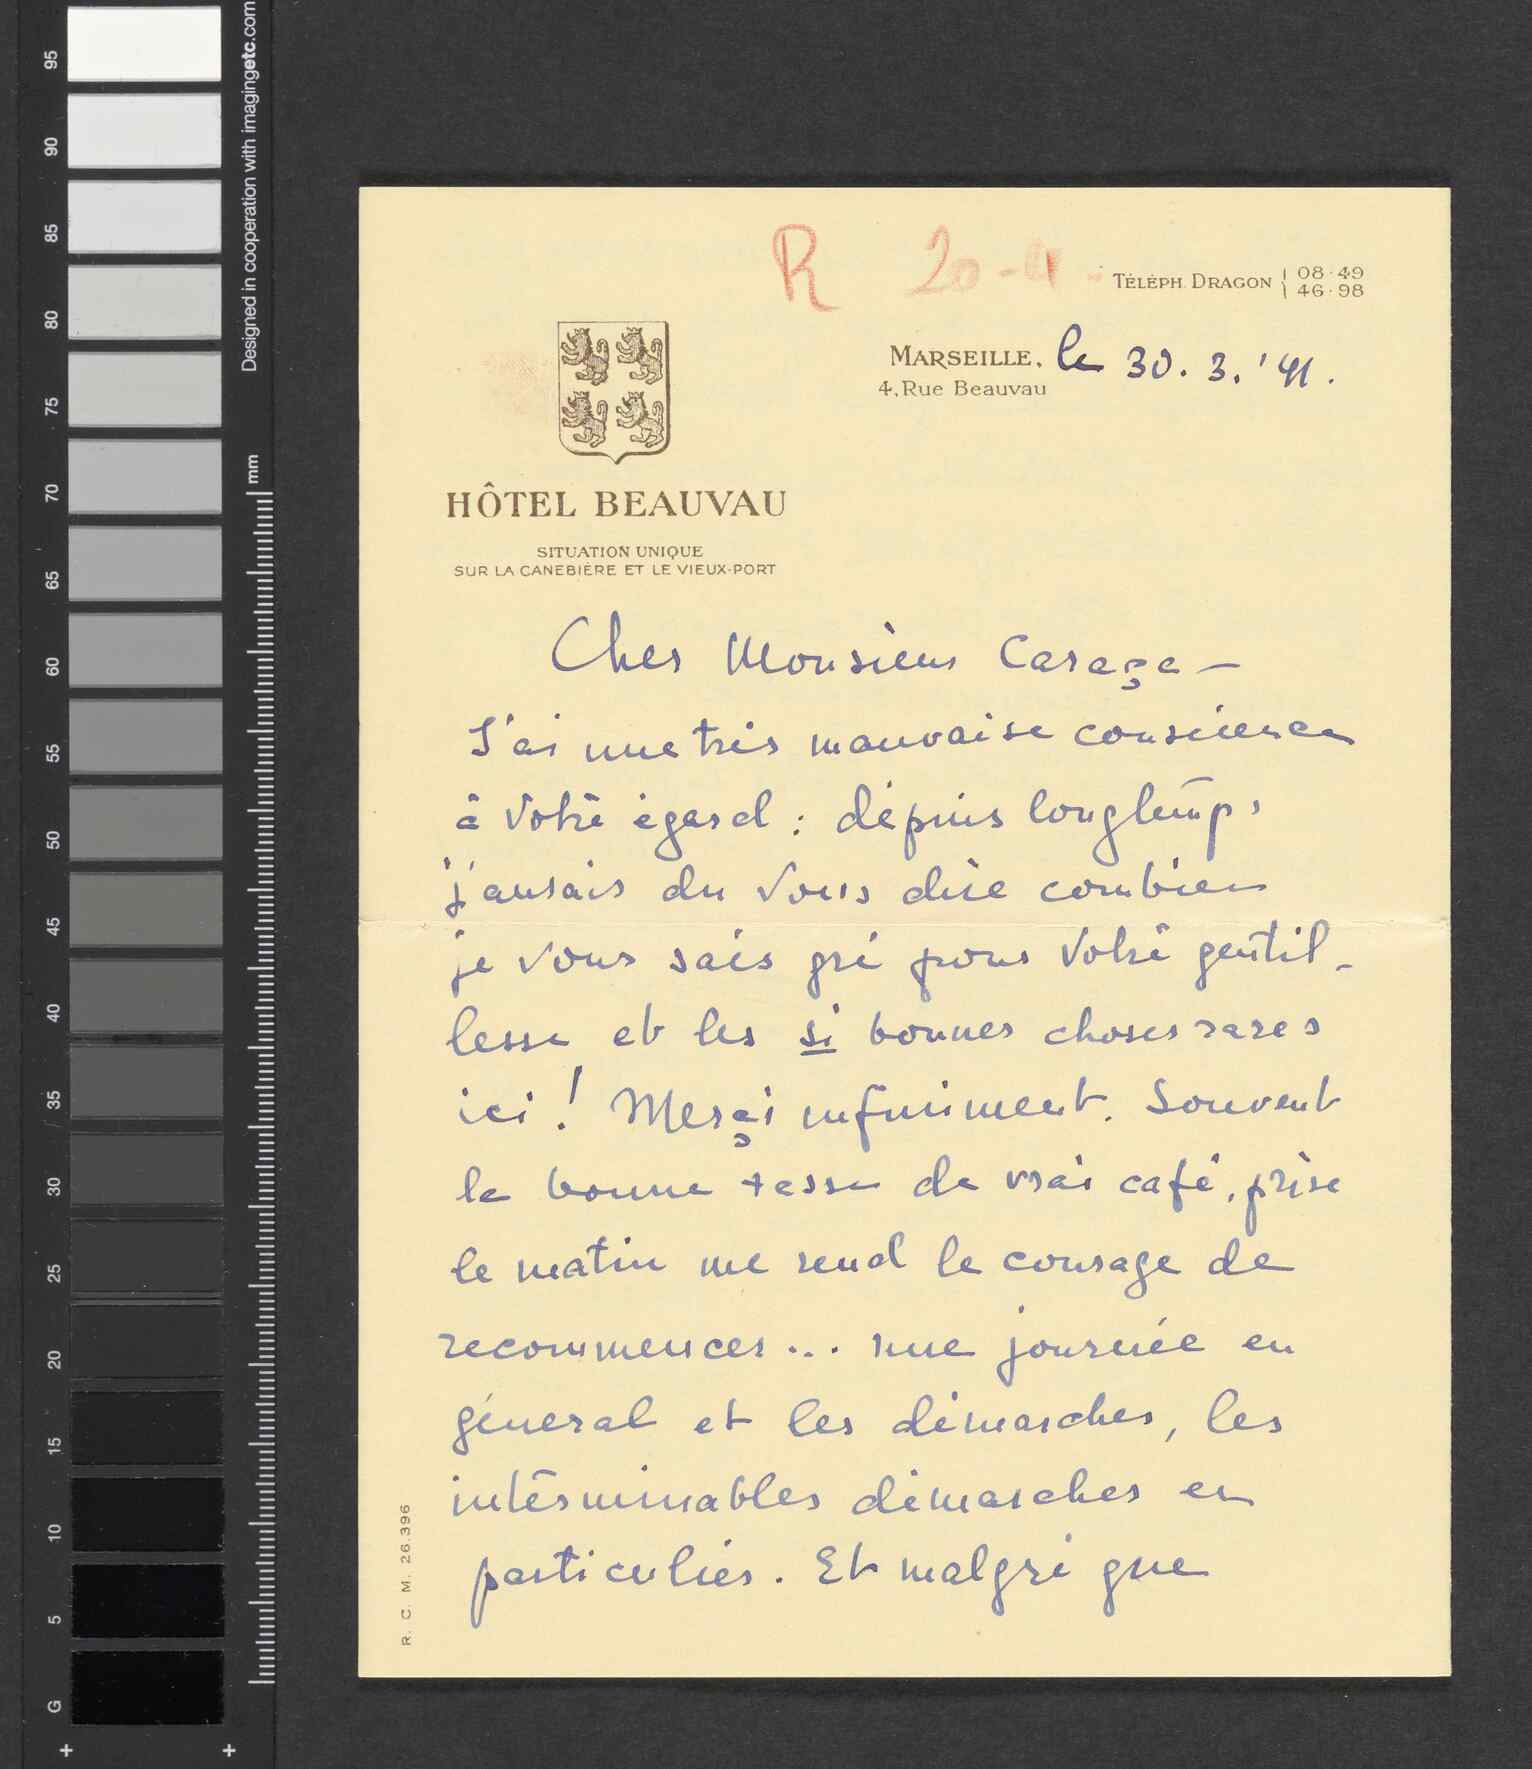 R 20-4
TÉLÉPH. DRAGON { 08·49
46·98
MARSEILLE, le 30. 3. '41.
4, Rue Beauvau
HÔTEL BEAUVAU
SITUATION UNIQUE
SUR LA CANEBIÈRE ET LE VIEUX-PORT
Cher Monsieur Caraça —
J'ai une très mauvaise conscience
à votre égard : depuis longtemps
j'aurais du vous dire combien
je vous sais gré pour votre gentil-
lesse et les si bonnes choses rares
ici ! Merçi infiniment. Souvent
la bonne tasse de vrai café, prise
le matin me rend le courage de
recommencer... une journée en
géneral et les démarches, les
intérminables démarches en
particulier. Et malgré que
R. C. M. 26.396
Designed in cooperation with imagingetc.com
mm
95
90
85
80
75
70
65
60
55
50
45
40
35
30
25
20
15
10
5
G